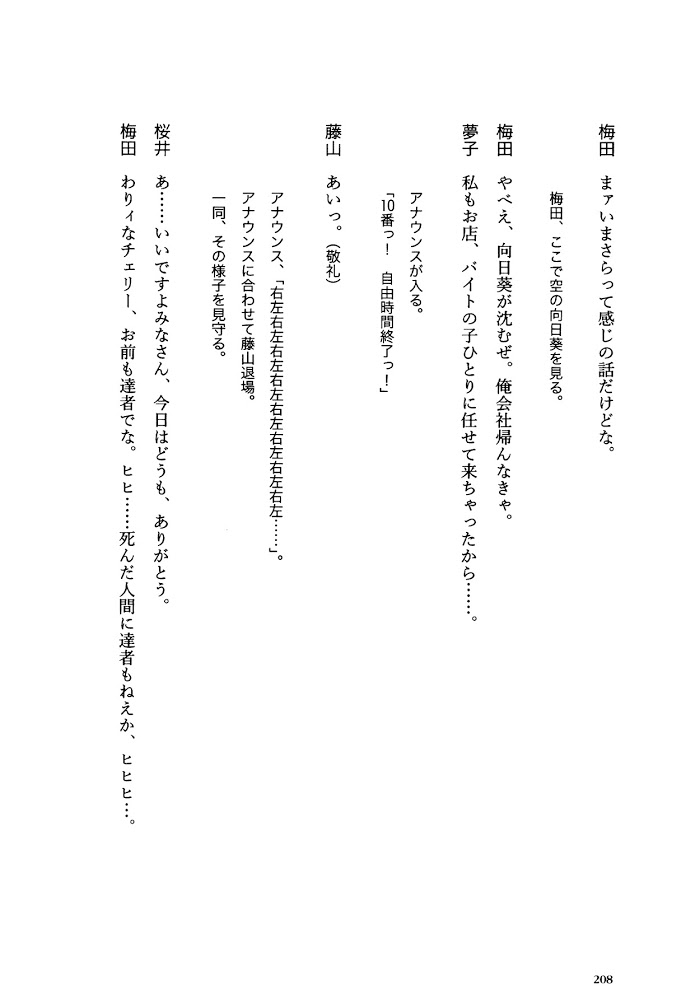 梅田　まァいまさらって感じの話だけどな。
梅田、ここで空の向日葵を見る。
梅田　やべえ、向日葵が沈むぜ。俺会社帰んなきゃ。
夢子　私もお店、バイトの子ひとりに任せて来ちゃったから……。
アナウンスが入る。
「10番っ！　自由時間終了っ！」
藤山　あいっ。（敬礼）
アナウンス、「右左右左右左右左右左右左右左右左……」。
アナウンスに合わせて藤山退場。
一同、その様子を見守る。
桜井　あ……いいですよみなさん、今日はどうも、ありがとう。
梅田　わりィなチェリー、お前も達者でな。ヒヒ……死んだ人間に達者もねえか、ヒヒヒ…。
208